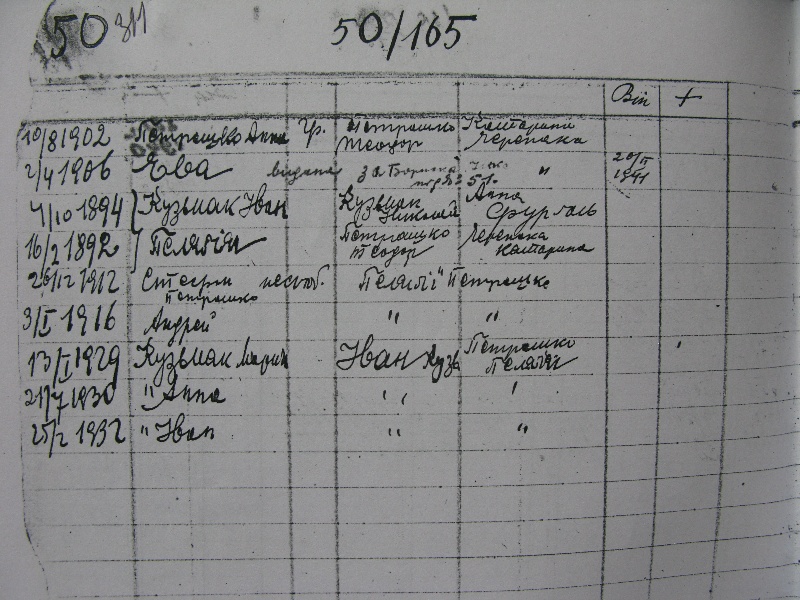 50 311 50/165
Він +
10/8 1902 Петрашко Анна Гр. Петрашко Теодор Катарина Черепака
2/4 1906 Ева видана за "
4/10 1894 Кузьмак Іван Кузьмак Николай Анна Фургаль
16/2 1892 Пелягія Петрашко Теодор Черепака Катарина
26/12 1912 Стефан неслюб. Пелягії Петрашко
Петрашко
3/I 1916 Андрей " "
13/I 1929 Кузьмак Мария Іван Кузь Петрашко Пелягія
21/7 1930 " Анна " "
25/2 1932 " Іван " "